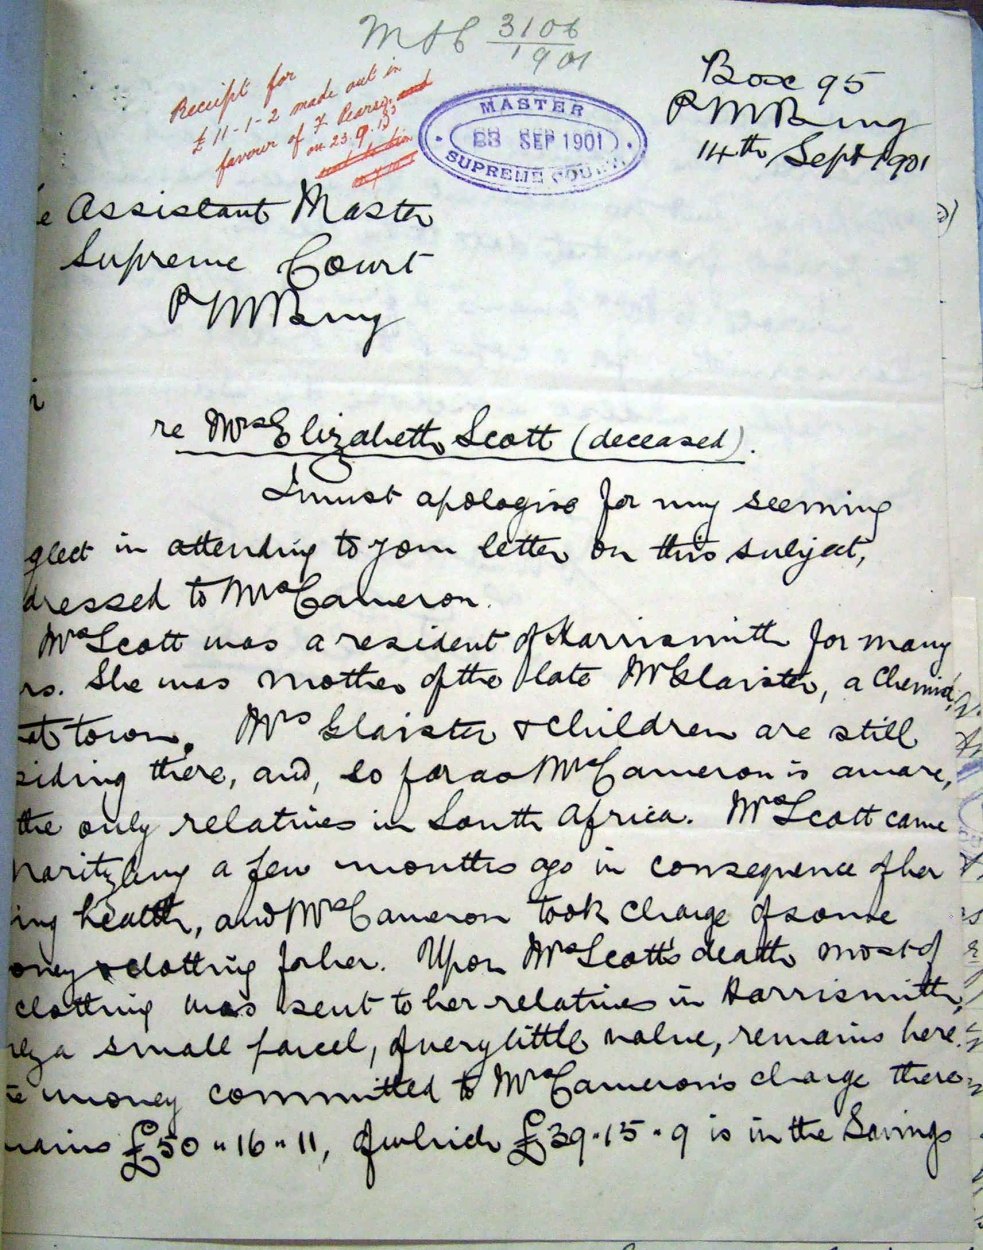 MSC 3106
1901
Receipt for
£11-1-2 made out in
favour of F Pearse
on 23.9.
MASTER
SEP 1901
SUPREME COURT
Box 95
PMBurg
14th Sept 1901
e Assistant Master
Supreme Court
PMBurg
re Mrs Elizabeth Scott (deceased).
I must apologise for my seeming
glect in attending to your letter on this subject,
dressed to Mrs Cameron.
Mrs Scott was a resident of Harrismith for many
rs. She was mother of the late Mr Glaister, a Chemist,
at town. Mrs Glaister & children are still
siding there, and, so far as Mrs Cameron is aware,
the only relatives in South Africa. Mrs Scott came
maritzburg a few months ago in consequence of her
ing health, and Mrs Cameron took charge of some
oney & clothing for her. Upon Mrs Scott's death most of
clothing was sent to her relatives in Harrismith,
ly a small parcel, of very little value, remains here.
e money committed to Mrs Cameron's charge there
mains £50 " 16 " 11, of which £39 " 15 " 9 is in the Savings